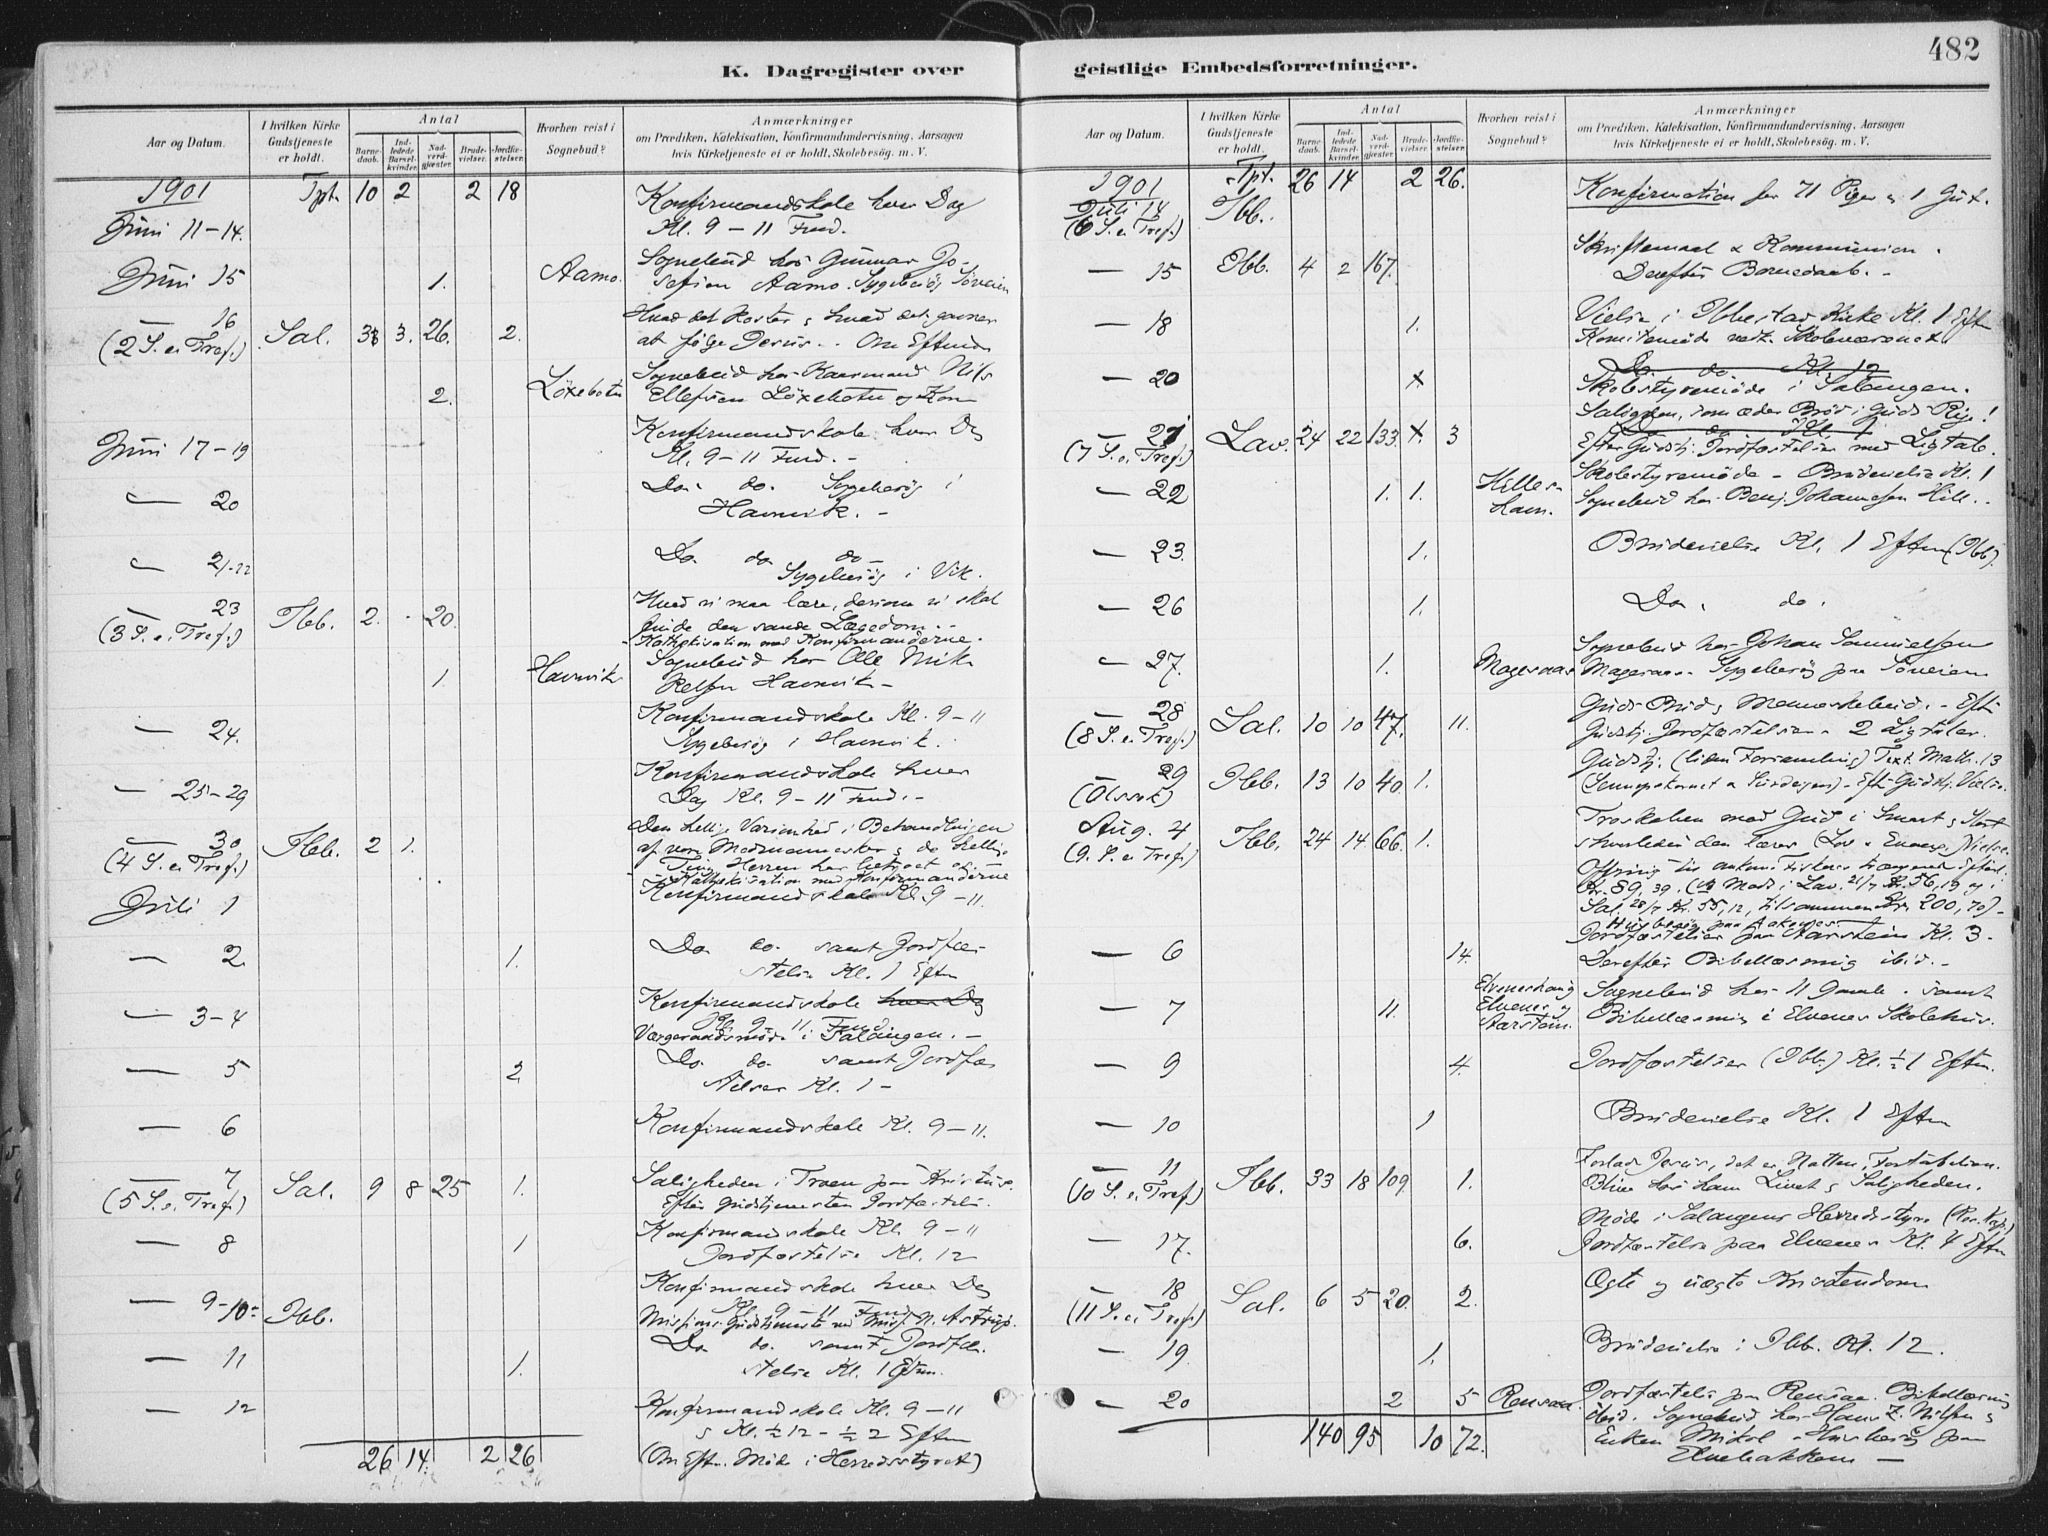 482
K. Dagregister over
geistlige Embedsforretninger.
Aar og Datum.
I hvilken Kirke Gudstjeneste er holdt.
Antal
Barnedaab.
Indledede Barselkvinder.
Nadverdgjester.
Brudevielser.
Jordfæstelser.
Hvorhen reist i Sognebud?
Anmærkninger
om Prædiken, Katekisation, Konfirmandundervisning, Aarsagen
hvis Kirketjeneste ei er holdt, Skolebesög. m. V.
1901 Tpt. 10 2 2 18
Juni 11-14. Konfirmandskole hver Dag
Kl. 9-11 Fmd.
Juni 15 1. Aamo. Sognebud hos Gunnar Jo-
sefsen Aamo. Sygebesög Söveien
16 Hvad det koster & hvad det gavner
(2 S. e. Tref.) Sal. 33 3. 26. 2. at følge Jesus.
2. Löxebotn Sognebud hos Kaarmand Nils
Ellefsen Löxebotn og Kone
Juni 17-19 Konfirmandskole hver Dag
Kl. 9-11 Fmd.
— 20 Do. do. Sygebesög i
Havnvik. -
— 21-22 Do do do -
Sygebesög i Vik.
23 Hvad vi maa lære, dersom vi skal
(3 S. e. Tref.) Ibb. 2. - 20. finde den sande Lægedom. -
Kathekisation med Konfirmanderne.
1. Havnvik Sognebud hos Ole Mik-
kelsen Havnvik -
— 24. Konfirmandskole Kl. 9-11
Sygebesög i Havnvik.
— 25-29 Konfirmandskole hver
Dag Kl. 9-11 Fmd. -
30 Den hellige Varsomhed i Behandlingen
(4 S. e. Tref.) Ibb. 2 1. af vore Medmennesker & de hellige
Ting, Herren har betroet os. -
Kathekisation med Konfirmanderne
Juli 1 Konfirmandskole Kl. 9-11.
— 2 1. Do do. samt Jordfæ-
stelse Kl. 1 Eftm
— 3-4 Konfirmandskole hver Dag
Kl. 9-11. Fmd
Værgeraadsmöde i Salangen. -
— 5 2 Do do. samt Jordfæ
stelser Kl. 1 -
— 6 Konfirmandskole Kl. 9-11.
7 Saligheden i Troen paa Kristus.
(5 S. e. Tref.) Sal. 9 8 25 1. Efter Gudstjenesten Jordfæstelse.
— 8 1 Konfirmandskole Kl. 9-11
Jordfæstelse Kl. 12
— 9-10- Ibb. Konfirmandskole hver Dag
Kl. 9-11 Fmd
Missions-Gudstjeneste ved Miss. N. Astrup.
— 11 1. Do do. samt Jordfæ-
stelse Kl. 1 Eftm.
— 12 Konfirmandskole Kl. 9-11
& Kl. ½12 - ½2 Eftm
26 14. 2 26 (Om Eftm. Möde i Herredsstyret)
Aar og Datum.
I hvilken Kirke Gudstjeneste er holdt.
Antal
Barnedaab.
Indledede Barselkvinder.
Nadverdgjester.
Brudevielser.
Jordfæstelser.
Hvorhen reist i Sognebud?
Anmærkninger
om Prædiken, Katekisation, Konfirmandundervisning, Aarsagen
hvis Kirketjeneste ei er holdt, Skolebesög. m. V.
1901 Tpt. 26 14 2 26.
Juli 14 Ibb. Konfirmation for 71 Piger & 1 Gut.
(6 S. e. Tref.)
— 15 Ibb. 4 2 167. Skriftemaal & Kommunion.
Derefter Barnedaab. -
— 18 1. Vielse i Ibbestad Kirke Kl. 1 Eftm
Komitemöde vedk. Skolevæsenet.
— 20 x Do. do. Kl. 12
Skolestyremöde i Salangen.
21 Salig den, som æder Bröd i Guds Rige!
(7 S. e. Tref.) Lav. 24 22 133. x. 3 Efter Gudstj. Jordfæstelser med Ligtale.
— 22 1. 1. Hilles-
havn. Skolestyremöde - Brudevielse Kl. 1
Sognebud hos Benj. Johannesen Hill.
— 23. 1. Brudevielse Kl. 1 Eftm (Ibb.)
— 26 1. Do. do.
— 27. 1. Mageraas Sognebud hos Johan Samuelsen
Mageraas. Sygebesög paa Söveien
28 Guds Bud & Menneskebud. - Efter
(8 S. e. Tref.) Sal. 10 10 47. 11. Gudstj. Jordfæstelser. 2 Ligtaler.
29 Gudstj. (liden Forsamling) Text. Math. 13
(Olsok) Ibb. 13 10 40 1. (Sennepskornet & Surdeigen) - Eft. Gudstj. Vielse.
Aug. 4 Troskaben mod Gud i Smaat & Stort
(9. S. e. Tref.) Ibb. 24 14 66. 1. & hvorledes den læres (Lov & Evang.) Vielse.
Kr. 89,39.
— 6 14. Jordfæstelser paa Aarstein Kl. 3.
Derefter Bibellæsning ibid. -
— 7 11. Elveneshaug
Elvenes &
Aarstein. Sognebud hos 11 Gamle. samt
Bibellæsning i Elvenes Skolehus.
— 9 4. Jordfæstelser (Ibb.) Kl. ½1 Eftm.
— 10 1 Brudevielse Kl. 1 Eftm
11 Forlade Jesus, det er Natten, Fortabelsen.
(10 S. e. Tref) Ibb. 33 18 109 1. Blive hos ham Livet & Saligheden.
Möde i Salangens Herredsstyre
— 17. 6. Jordfæstelse paa Elvenes Kl. 4 Eftm
18 Ægte og uægte Kristendom
(11 S. e. Tref.) Sal. 6 5 20. 2.
— 19 1. Brudevielse i Ibb. Kl. 12.
— 20 2 5 Rensaa. Jordfæstelse paa Rensaa. Bibellæsning
ibid. Sognebud hos Hans Z. Nilsen &
140 95 10 72. Enken Mikal. Husbesög paa
Elvebakken —